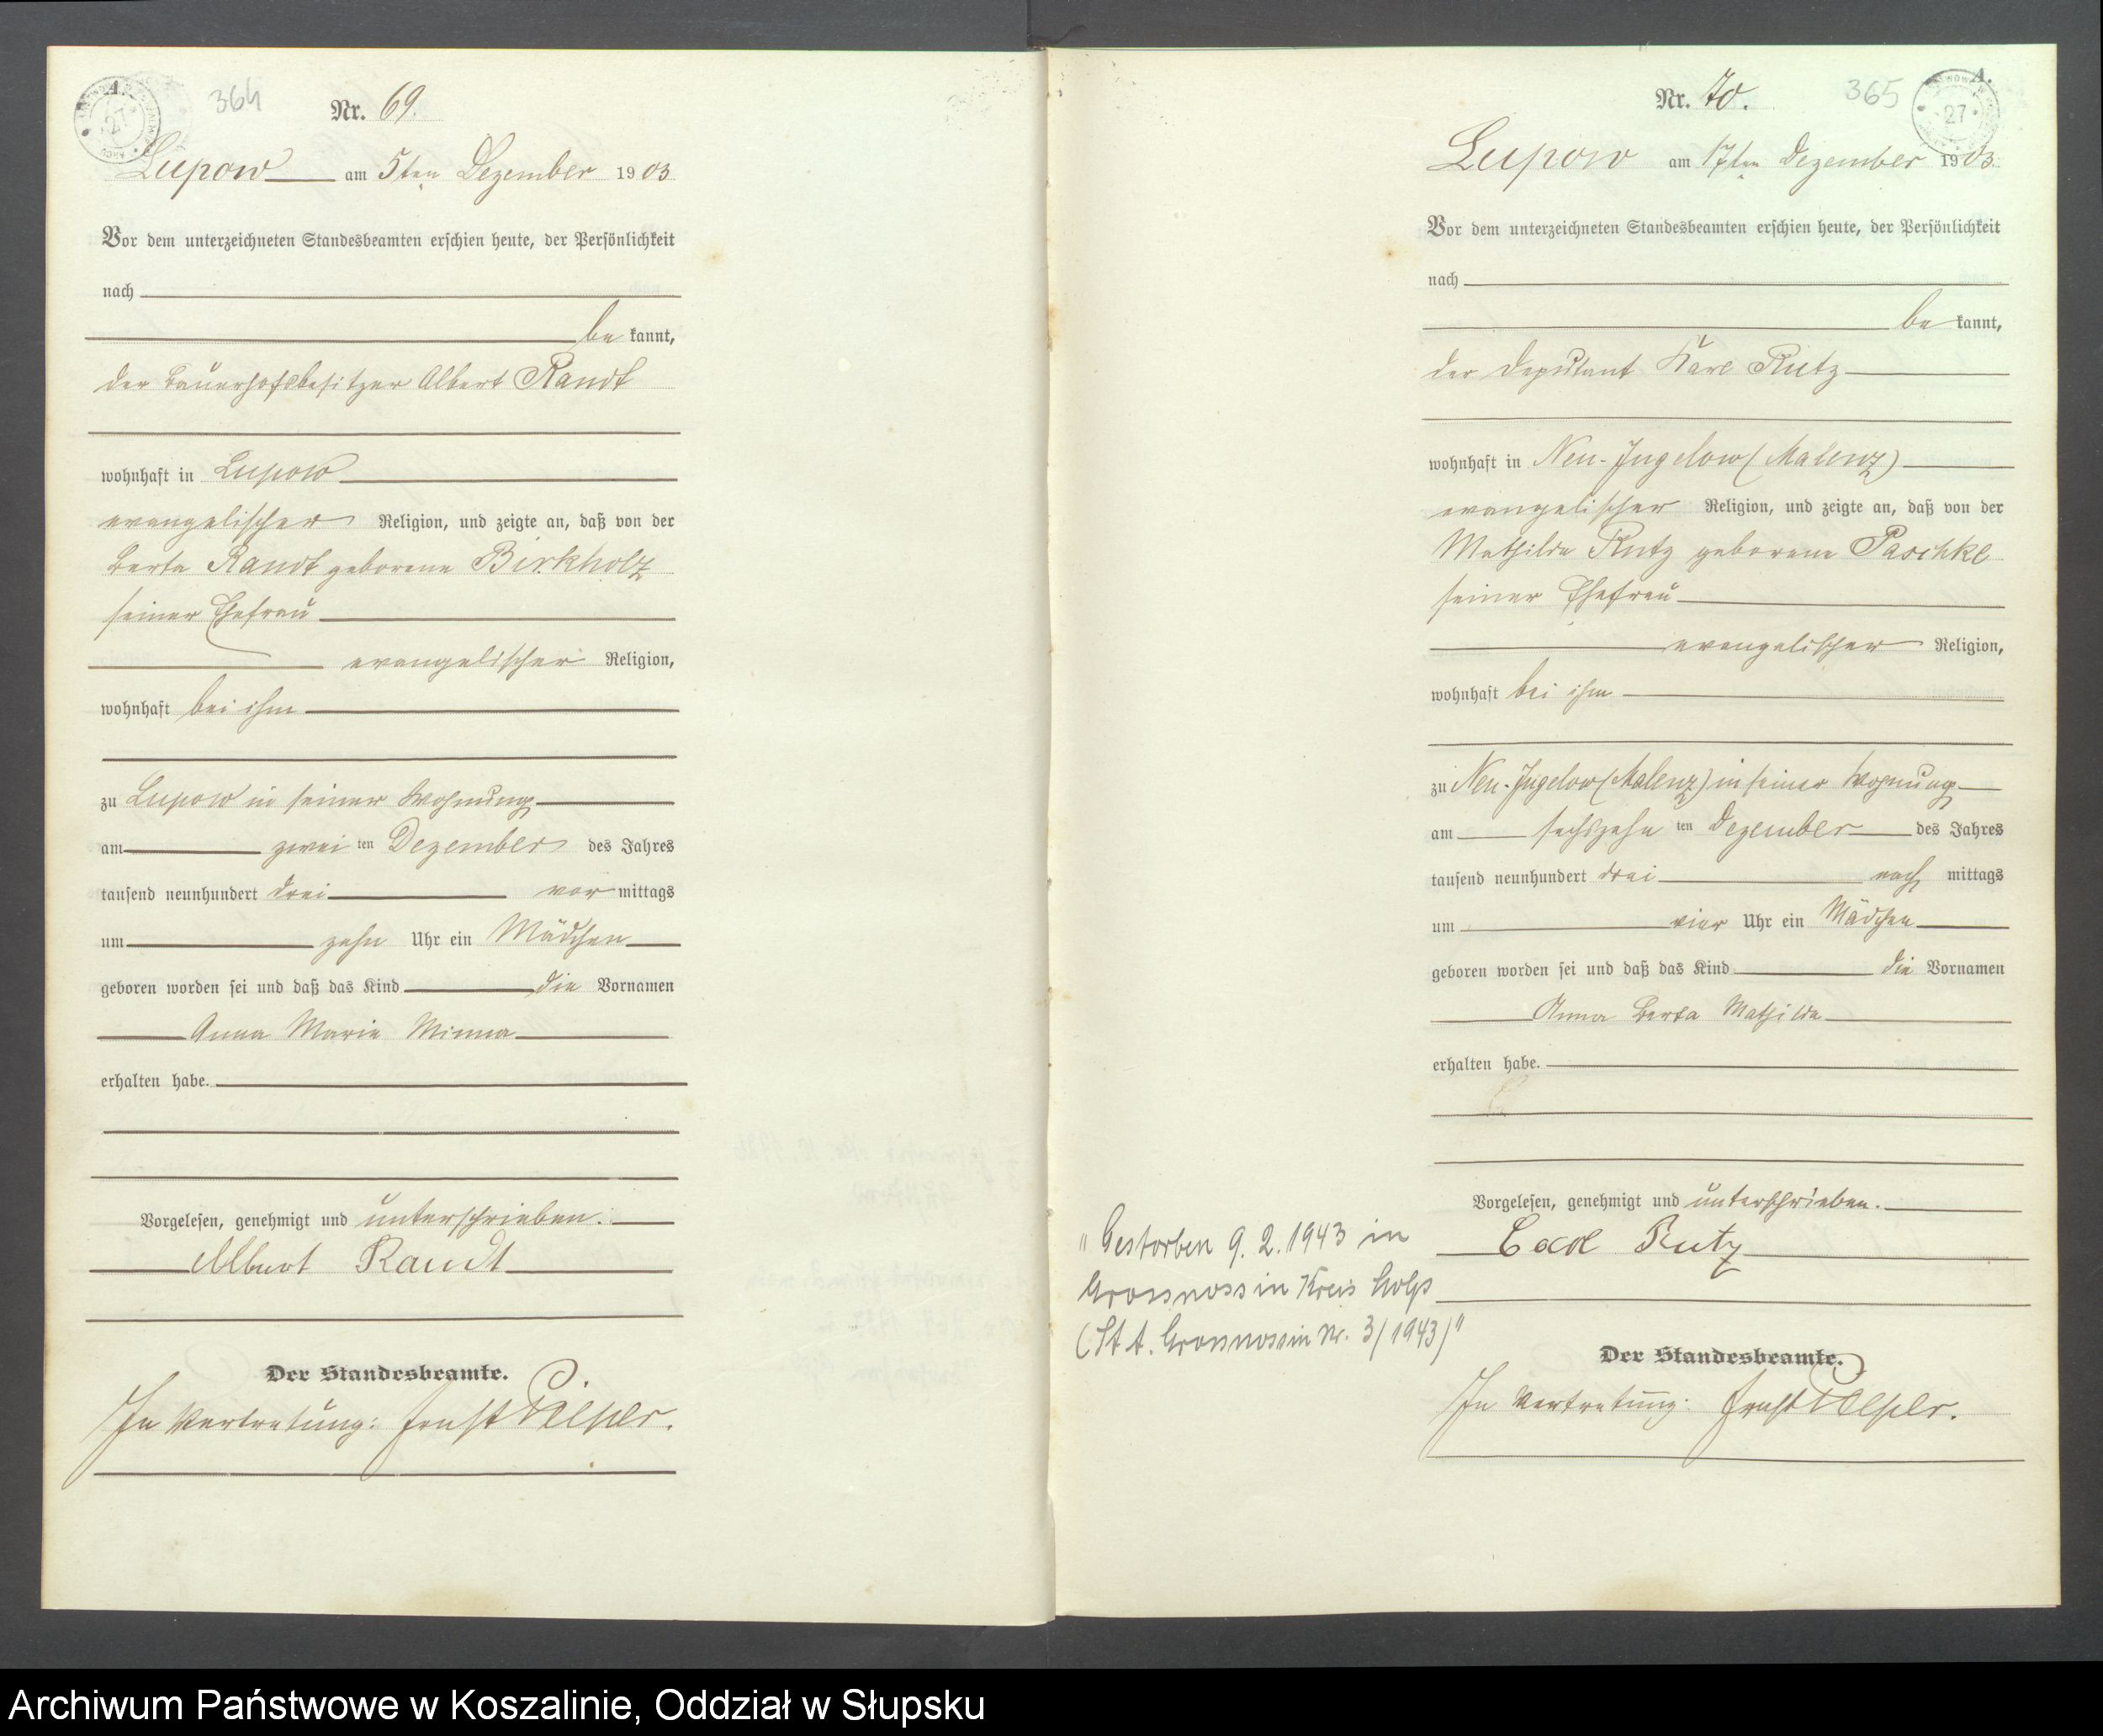 364
Nr. 69.
Lupow am 5ten Dezember 1903
Vor dem unterzeichneten Standesbeamten erschien heute, der Persönlichkeit
nach
be kannt,
der Bauerhofsbesitzer Albert Randt
wohnhaft in Lupow
evangelischer Religion, und zeigte an, daß von der
Berta Randt geborene Birkholz
seiner Ehefrau
evangelischer Religion,
wohnhaft bei ihm
zu Lupow in seiner Wohnung
am zwei ten Dezember des Jahres
tausend neunhundert drei vor mittags
um zehn Uhr ein Mädchen
geboren worden sei und daß das Kind die Vornamen
Anna Marie Minna
erhalten habe.
Vorgelesen, genehmigt und unterschrieben.
Albert Randt
Der Standesbeamte.
In Vertretung: Ernst
A.
365
27
Nr. 70.
Lupow am 17ten Dezember 1903
Vor dem unterzeichneten Standesbeamten erschien heute, der Persönlichkeit
nach
be kannt,
der Deputant Karl Rutz
wohnhaft in Neu-Jugelow (Malenz)
evangelischer Religion, und zeigte an, daß von der
Mathilde Rutz geborene Paschke
seiner Ehefrau
evangelischer Religion,
wohnhaft bei ihm
zu Neu-Jugelow (Malenz) in seiner Wohnung
am sechszehn ten Dezember des Jahres
tausend neunhundert drei nach mittags
um vier Uhr ein Mädchen
geboren worden sei und daß das Kind die Vornamen
Anna Berta Mathilde
erhalten habe.
Vorgelesen, genehmigt und unterschrieben.
Carl Rutz
Der Standesbeamte.
In Vertretung: Ernst
"Gestorben 9. 2. 1943 in
Grossnossin Kreis Stolp
(St. A. Grossnossin Nr. 3/1943)"
Archiwum Państwowe w Koszalinie, Oddział w Słupsku